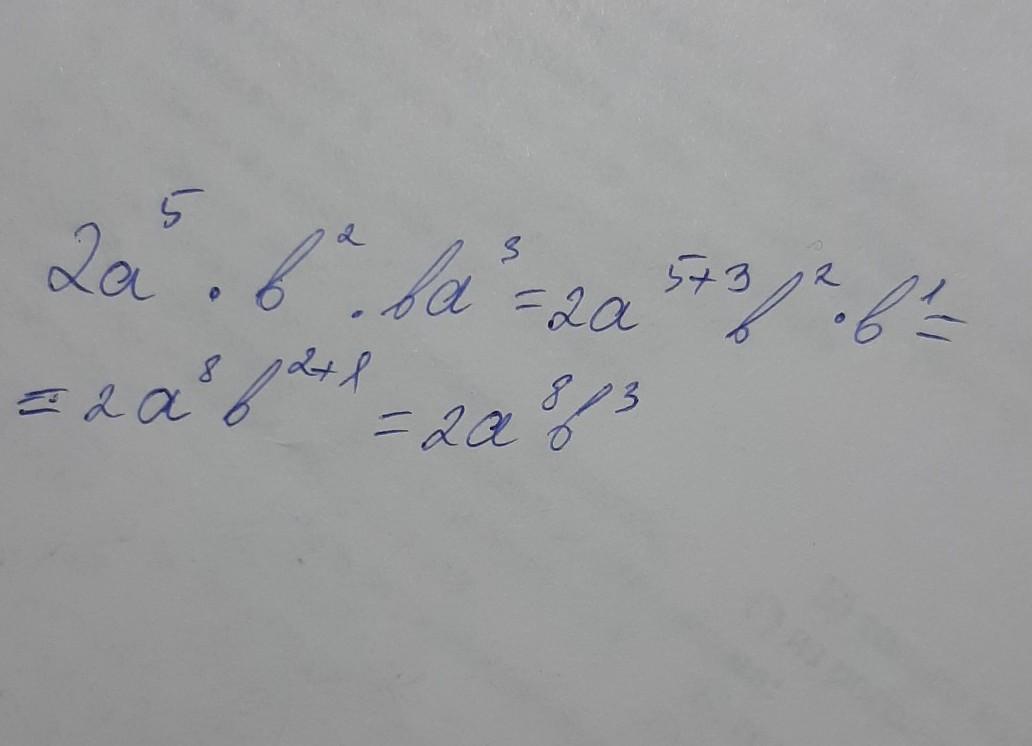 2a⁵ · b² · ba³ = 2a⁵⁺³b² · b¹ =
= 2a⁸b²⁺¹ = 2a⁸b³